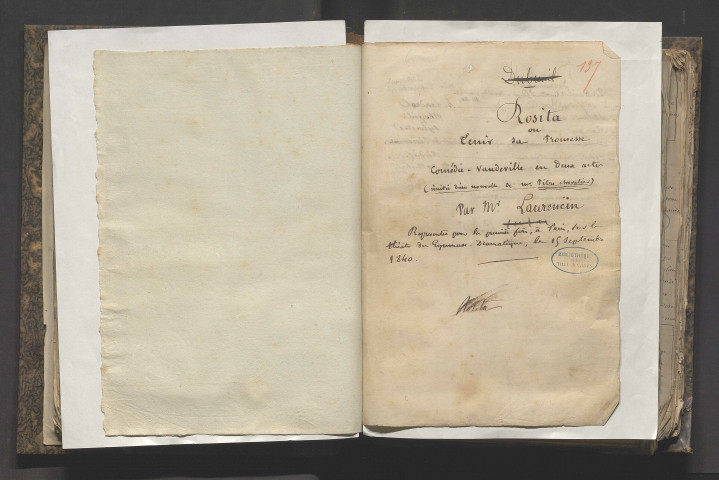 Dubreuil
137
Rosita
ou
Tenir sa Promesse
Comédie-Vaudeville en Deux actes
(imitée d'une nouvelle de Mr Pitre chevalier)
Par Mr Laurencin
Représentée pour la première fois, à Paris, sur le
théâtre du Gymnase-Dramatique, le 15 Septembre
1840.
Rosita